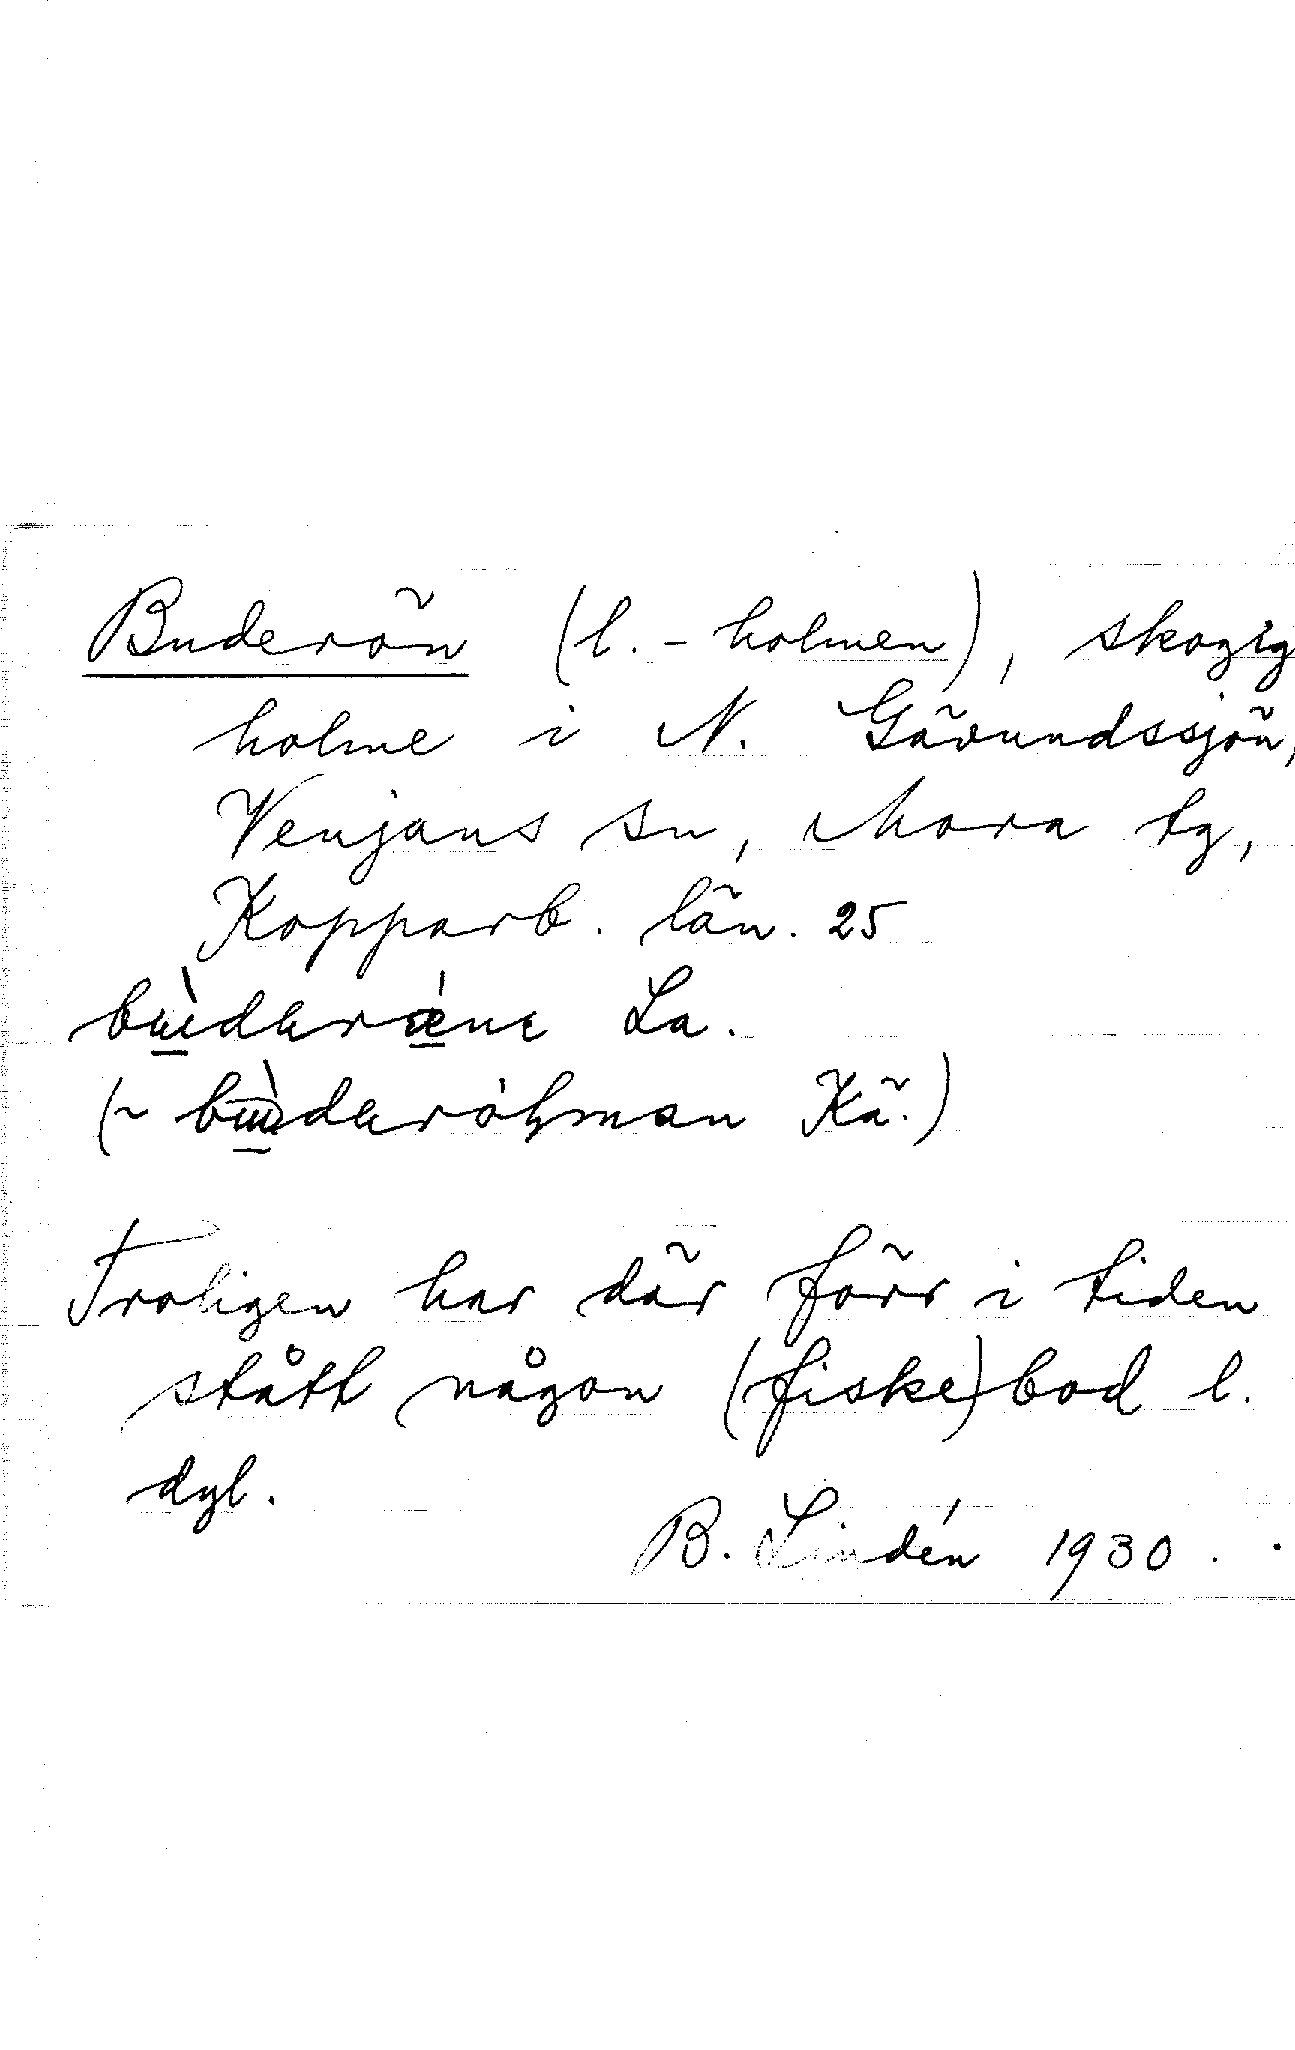 Buderön (l. -holmen), skogig
holme i N. Gävundssjön,
Venjans sn, Mora tg,
Kopparb. län. 25
La.
(~ Kä.)
Troligen har där förr i tiden
stått någon (fiske)bod l.
dyl.
B. Lindén 1930.